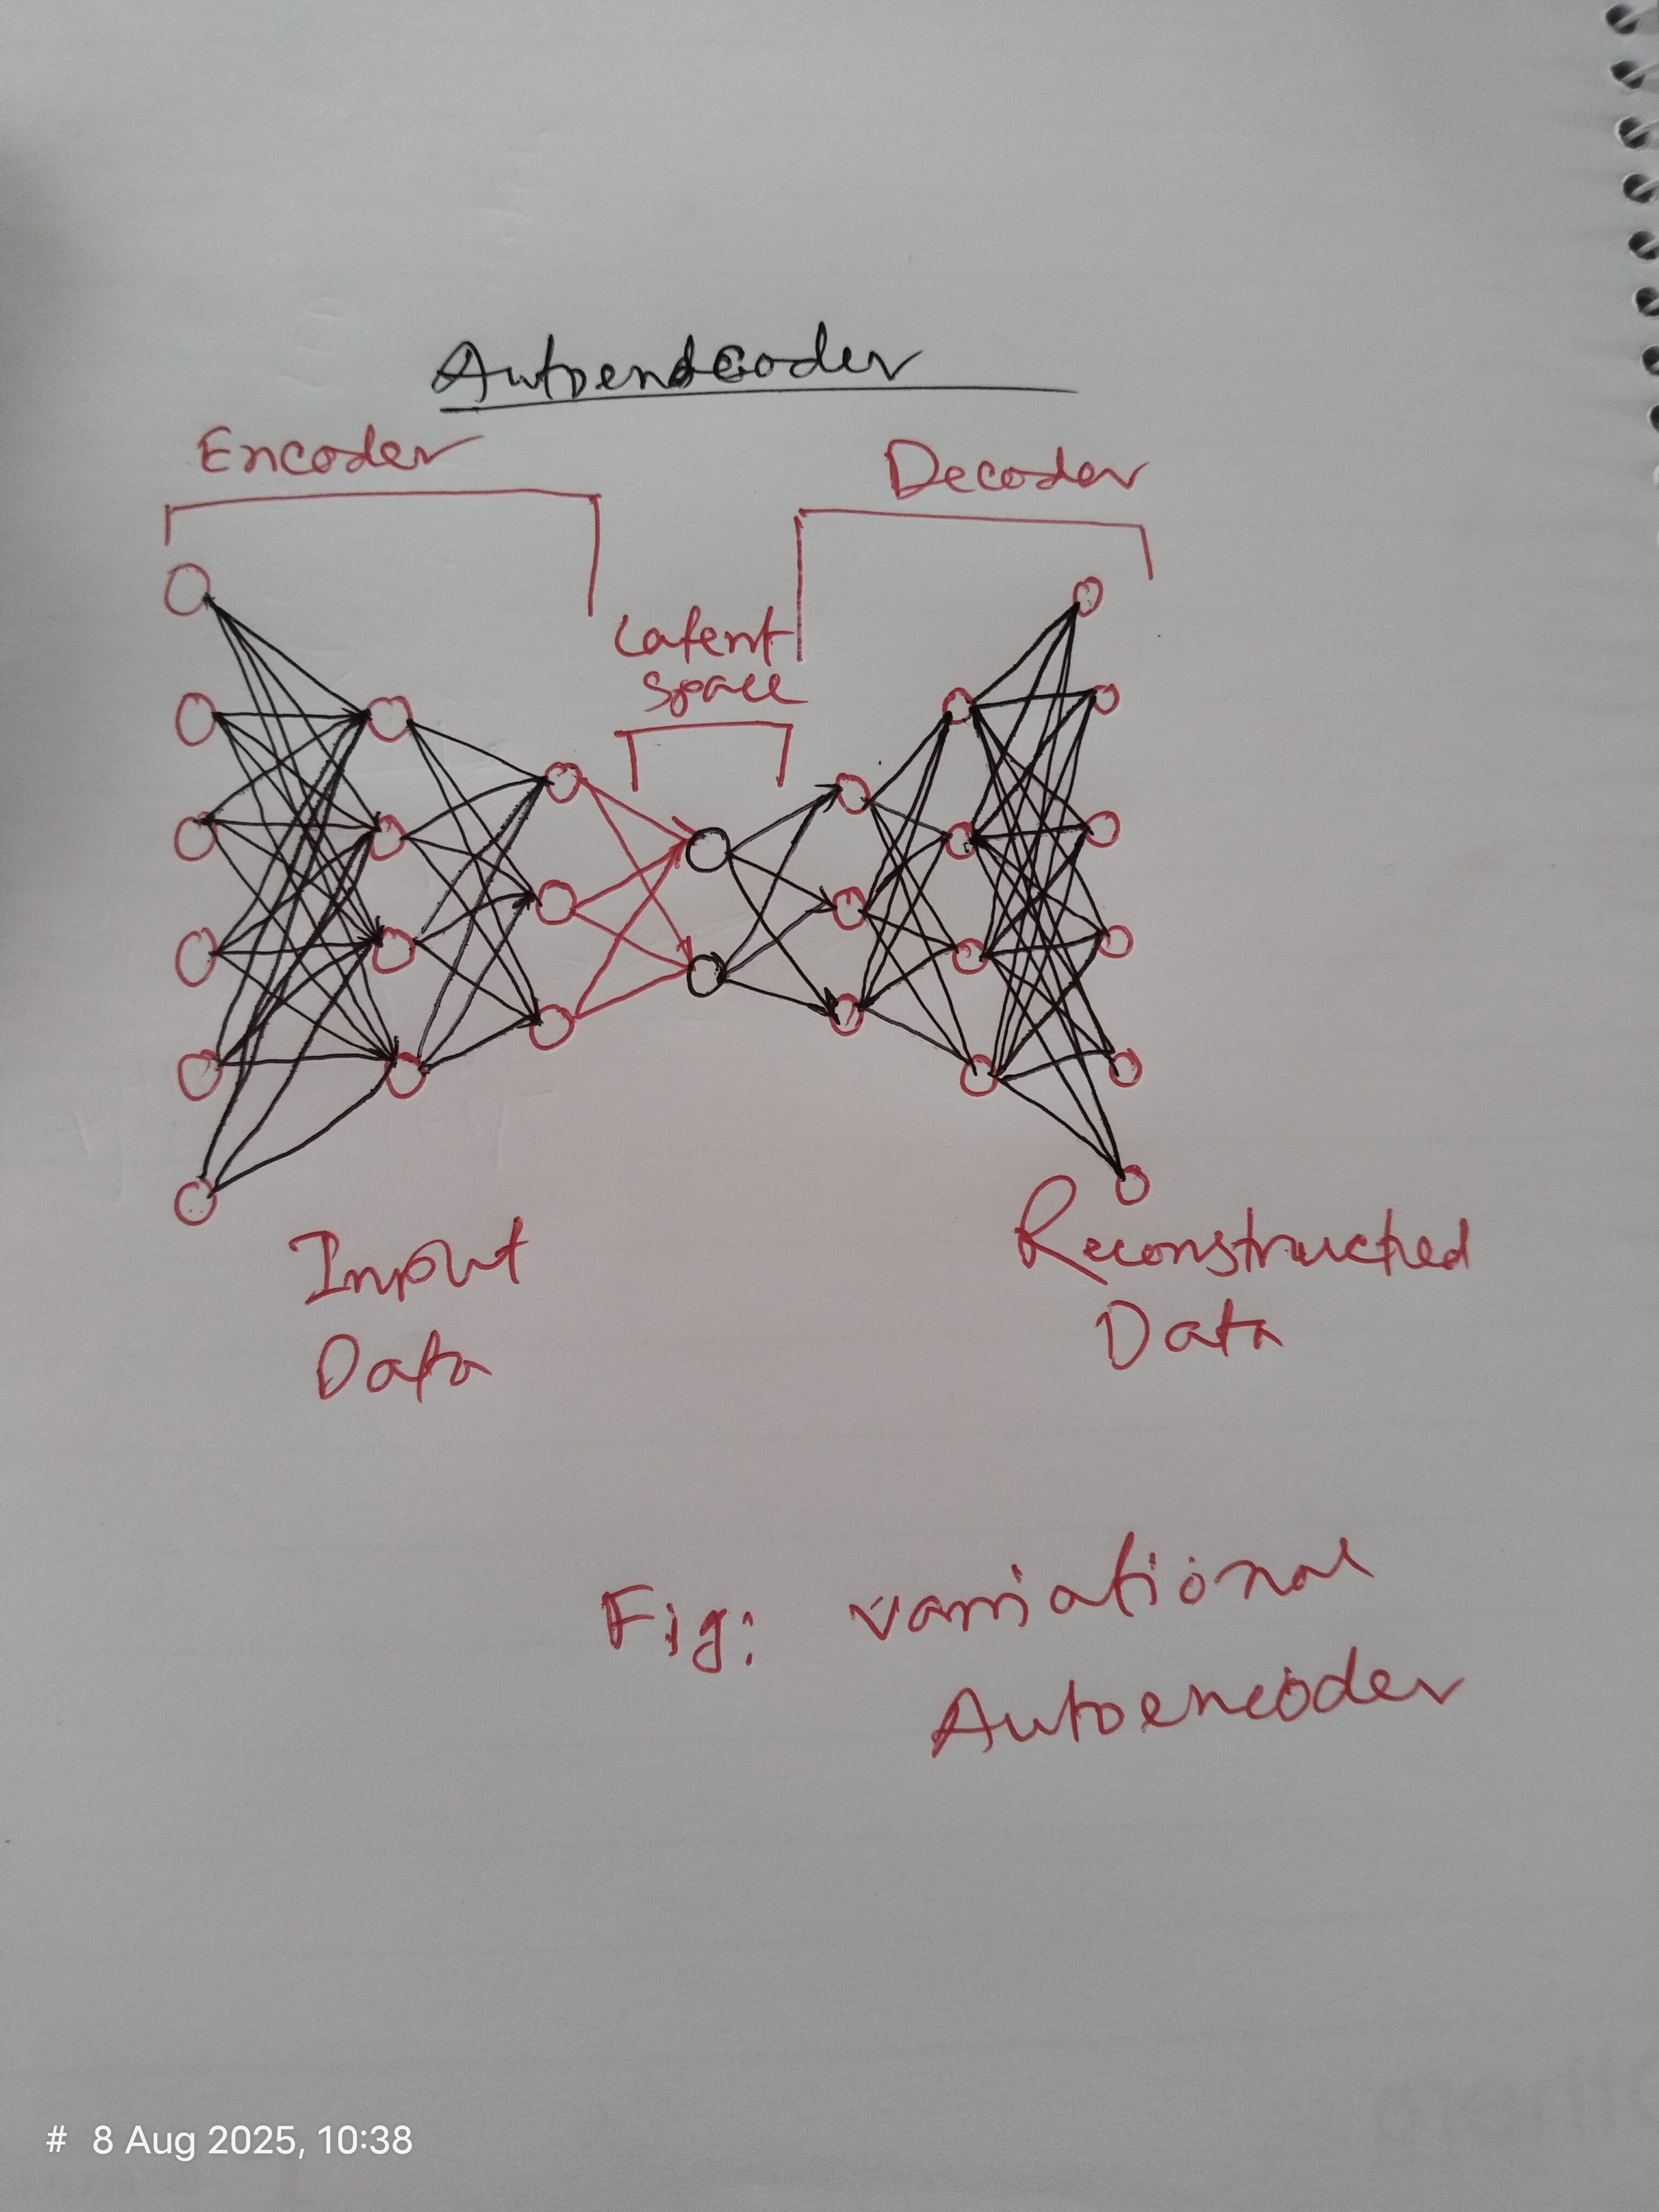 Autoendecoder
Encoder
Decoder
Latent
space
Input
Data
Reconstructed
Data
Fig: variational
Autoencoder
# 8 Aug 2025, 10:38